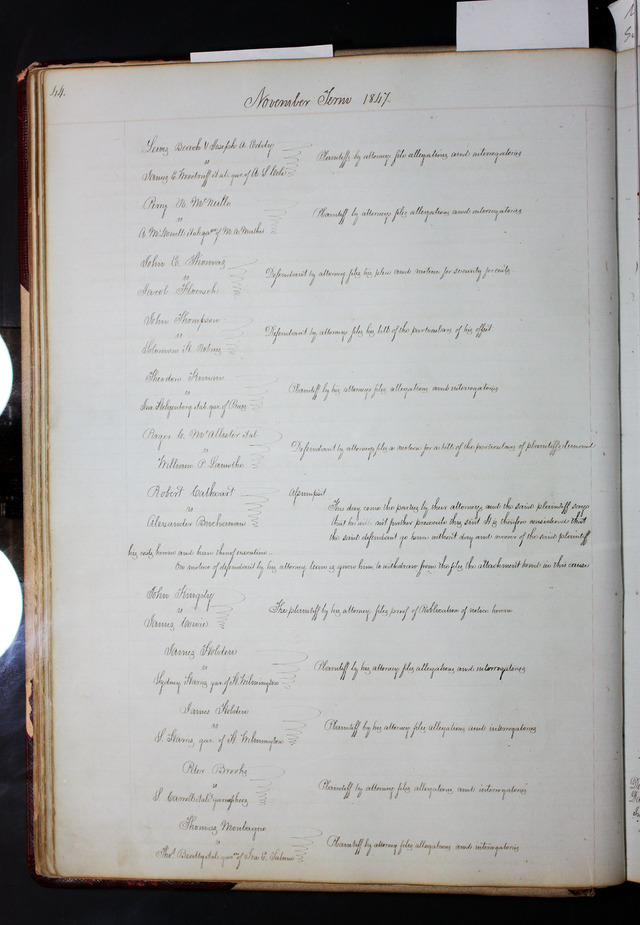 44.
November Term 1847.
Lewis Beach & Joseph A.
vs
James E Woodruff et al. gar. of A S
Plaintiffs by attorney file allegations and interrogatories
Perry
vs
Plaintiff by attorney files allegations and interrogatories
John E. Thomas
vs
Jacob
Defendant by attorney files his plea and motion for security for costs
John Thompson
vs
Solomon
Defendant by attorney files his bill of the particulars of his offset
Theodore
vs
et al. gar. of
Plaintiff by his attorney files allegations and interrogatories
C. McAllister et al
vs
William P.
Defendant by attorney files a motion for a bill of the particulars of plaintiff's demand
Robert Cathcart
vs
Alexander Buchanan
Assumpsit
This day come the parties by their attorneys and the said plaintiff says
that he will not further prosecute this suit It is therefore considered that
the said defendant go hence without day and recover of the said plaintiff
his costs herein and have thereof execution.
On motion of defendant by his attorney leave is given him to withdraw from the files the attachment bond in this cause
John Kingsly
vs
James
The plaintiff by his attorney files proof of Publication of notice herein
James Holden
vs
Sydney Harris gar. of H Wilmington
Plaintiff by his attorney files allegations and interrogatories
James Holden
vs
S. Harris gar. of H Wilmington
Plaintiff by his attorney files allegations and interrogatories
Peter Brooks
vs
S.
Plaintiff by attorney files allegations and interrogatories
Thomas Montague
vs
Thos. et al. of Ira E.
Plaintiff by attorney files allegations and interrogatories